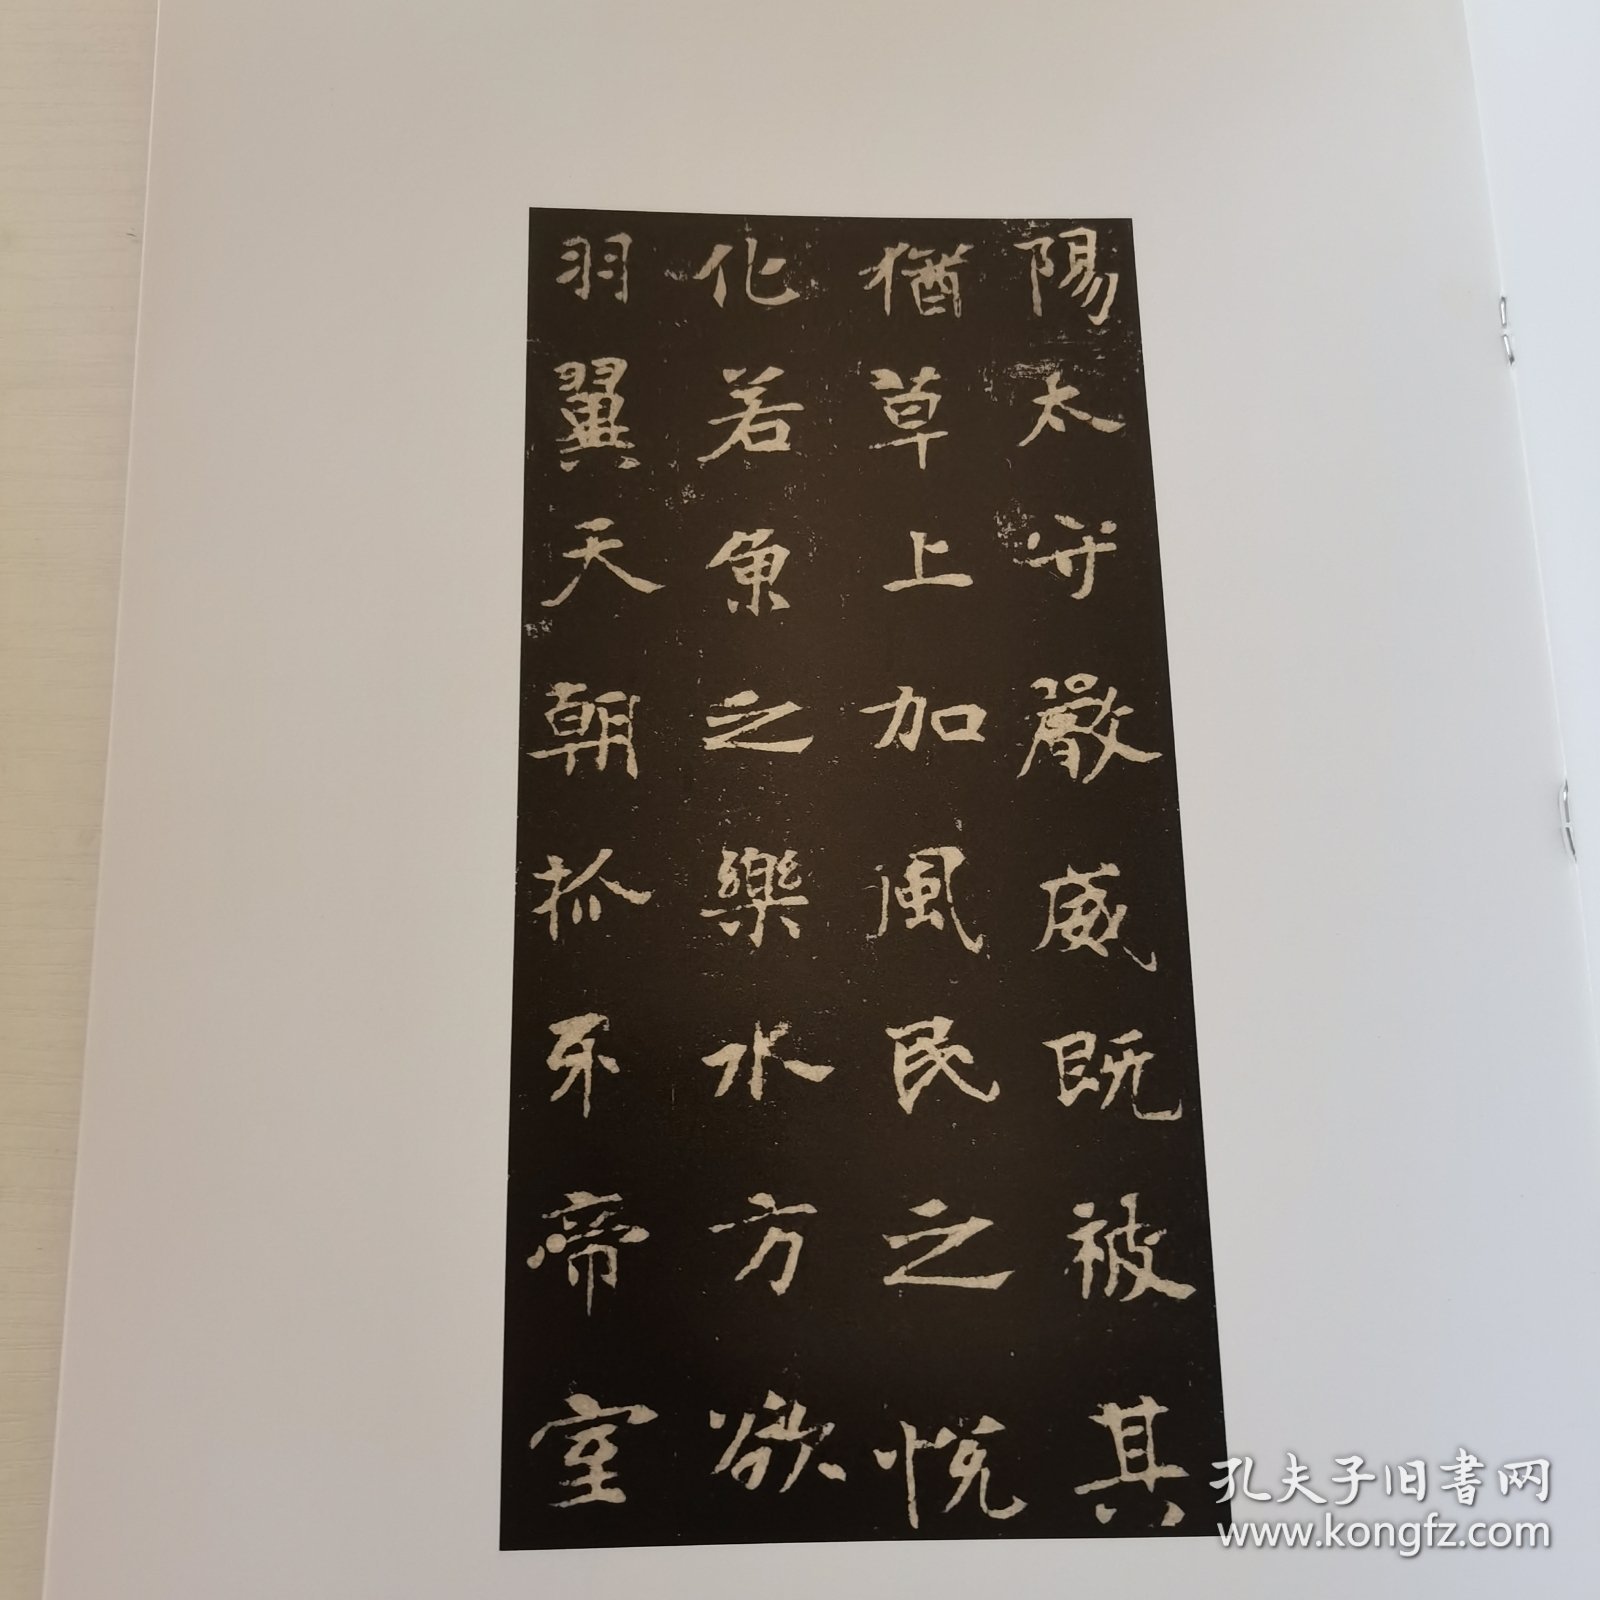 陽太守嚴威既被其
猶草上加風民之悅
化若魚之樂水方欲
羽翼天朝抓牙帝室
孔夫子旧书网
www.kongfz.com